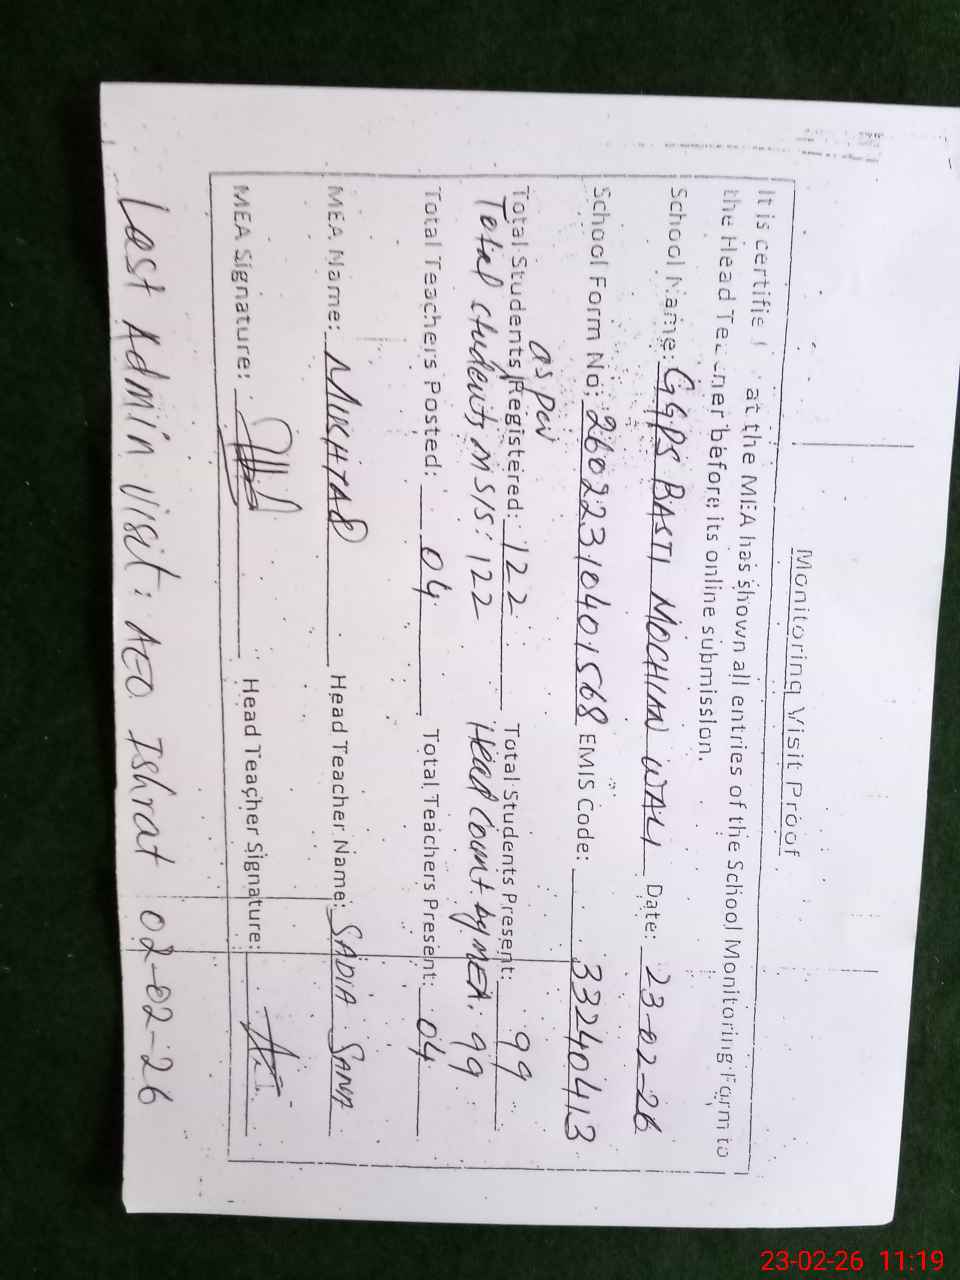 Monitoring Visit Proof
It is certifie at the MEA has shown all entries of the School Monitoring Form to
the Head Te ner before its online submission.
School Name: GGPS BASTI MOCHIAN WALI Date: 23-02-26
School Form No: 26022310401568 EMIS Code: 33240413
as per
Total Students Registered: 122 Total Students Present: 99
Total students MSIS: 122 Head Count by MEA: 99
Total Teachers Posted: 04 Total Teachers Present: 04
MEA Name: MUKHTAR Head Teacher Name: SADIA SANA
MEA Signature: Head Teacher Signature:
Last Admin Visit: AEO Ishrat 02-02-26
23-02-26 11:19